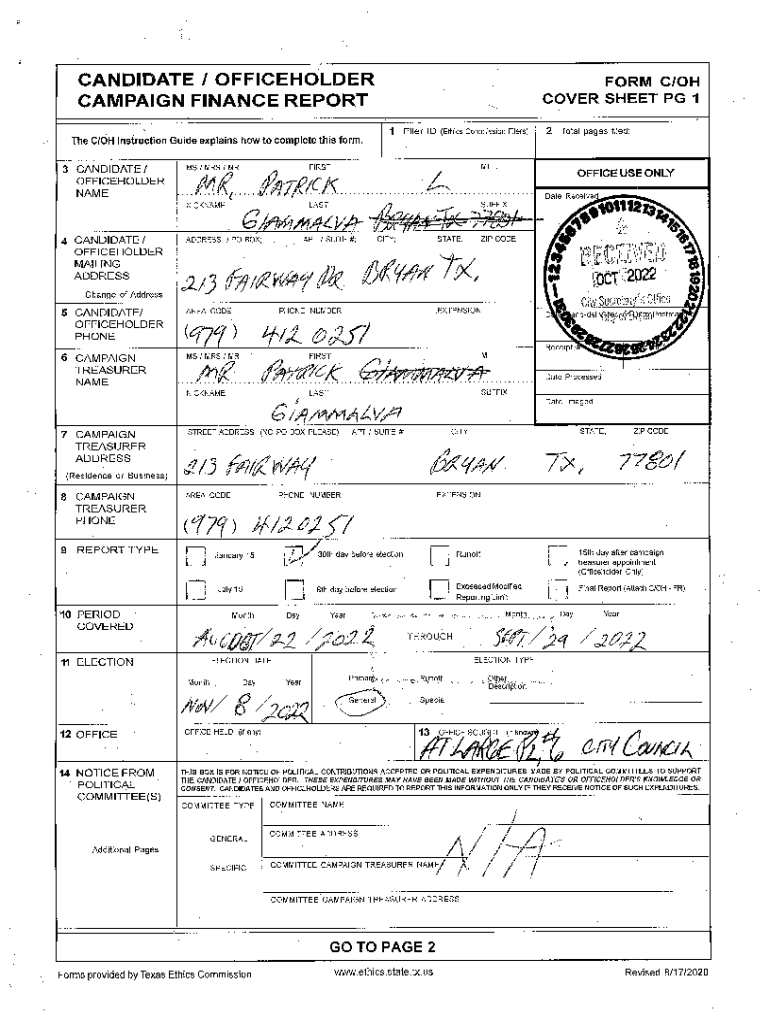 CANDIDATE / OFFICEHOLDER
CAMPAIGN FINANCE REPORT
FORM C/OH
COVER SHEET PG 1
The C/OH Instruction Guide explains how to complete this form.
1 Filer ID (Ethics Commission Filers)
2 Total pages filed:
3 CANDIDATE / OFFICEHOLDER NAME
MS / MRS / MR FIRST MI
MR, PATRICK L
NICKNAME LAST SUFFIX
GIAMMALVA BRYAN TX 77801
OFFICE USE ONLY
Date Received
RECEIVED
OCT 2022
City Secretary's Office
4 CANDIDATE / OFFICEHOLDER MAILING ADDRESS
Change of Address
ADDRESS / PO BOX; APT / SUITE #; CITY; STATE; ZIP CODE
213 FAIRWAY DR. BRYAN TX,
5 CANDIDATE/ OFFICEHOLDER PHONE
AREA CODE PHONE NUMBER EXTENSION
(979) 412 0251
Receipt #
6 CAMPAIGN TREASURER NAME
MS / MRS / MR FIRST MI
MR PATRICK GIAMMALVA
NICKNAME LAST SUFFIX
GIAMMALVA
Date Processed
Date Imaged
7 CAMPAIGN TREASURER ADDRESS
(Residence or Business)
STREET ADDRESS (NO PO BOX PLEASE); APT / SUITE #; CITY; STATE; ZIP CODE
213 FAIRWAY BRYAN TX, 77801
8 CAMPAIGN TREASURER PHONE
AREA CODE PHONE NUMBER EXTENSION
(979) 4120251
9 REPORT TYPE
January 15 30th day before election Runoff 15th day after campaign treasurer appointment (Officeholder Only)
July 15 8th day before election Exceeded Modified Reporting Limit Final Report (Attach C/OH - FR)
10 PERIOD COVERED
Month Day Year Month Day Year
AUGUST/22/2022 THROUGH SEPT/29/2022
11 ELECTION
ELECTION DATE ELECTION TYPE
Month Day Year Primary Runoff Other Description
NOV/8/2022 General Special
12 OFFICE
OFFICE HELD (if any)
13 OFFICE SOUGHT (if known)
AT LARGE PL #6 CITY COUNCIL
14 NOTICE FROM POLITICAL COMMITTEE(S)
THIS BOX IS FOR NOTICE OF POLITICAL CONTRIBUTIONS ACCEPTED OR POLITICAL EXPENDITURES MADE BY POLITICAL COMMITTEES TO SUPPORT
THE CANDIDATE / OFFICEHOLDER. THESE EXPENDITURES MAY HAVE BEEN MADE WITHOUT THE CANDIDATE'S OR OFFICEHOLDER'S KNOWLEDGE OR
CONSENT. CANDIDATES AND OFFICEHOLDERS ARE REQUIRED TO REPORT THIS INFORMATION ONLY IF THEY RECEIVE NOTICE OF SUCH EXPENDITURES.
COMMITTEE TYPE COMMITTEE NAME
GENERAL
COMMITTEE ADDRESS
N/A
Additional Pages
SPECIFIC
COMMITTEE CAMPAIGN TREASURER NAME
COMMITTEE CAMPAIGN TREASURER ADDRESS
GO TO PAGE 2
Forms provided by Texas Ethics Commission
www.ethics.state.tx.us
Revised 8/17/2020